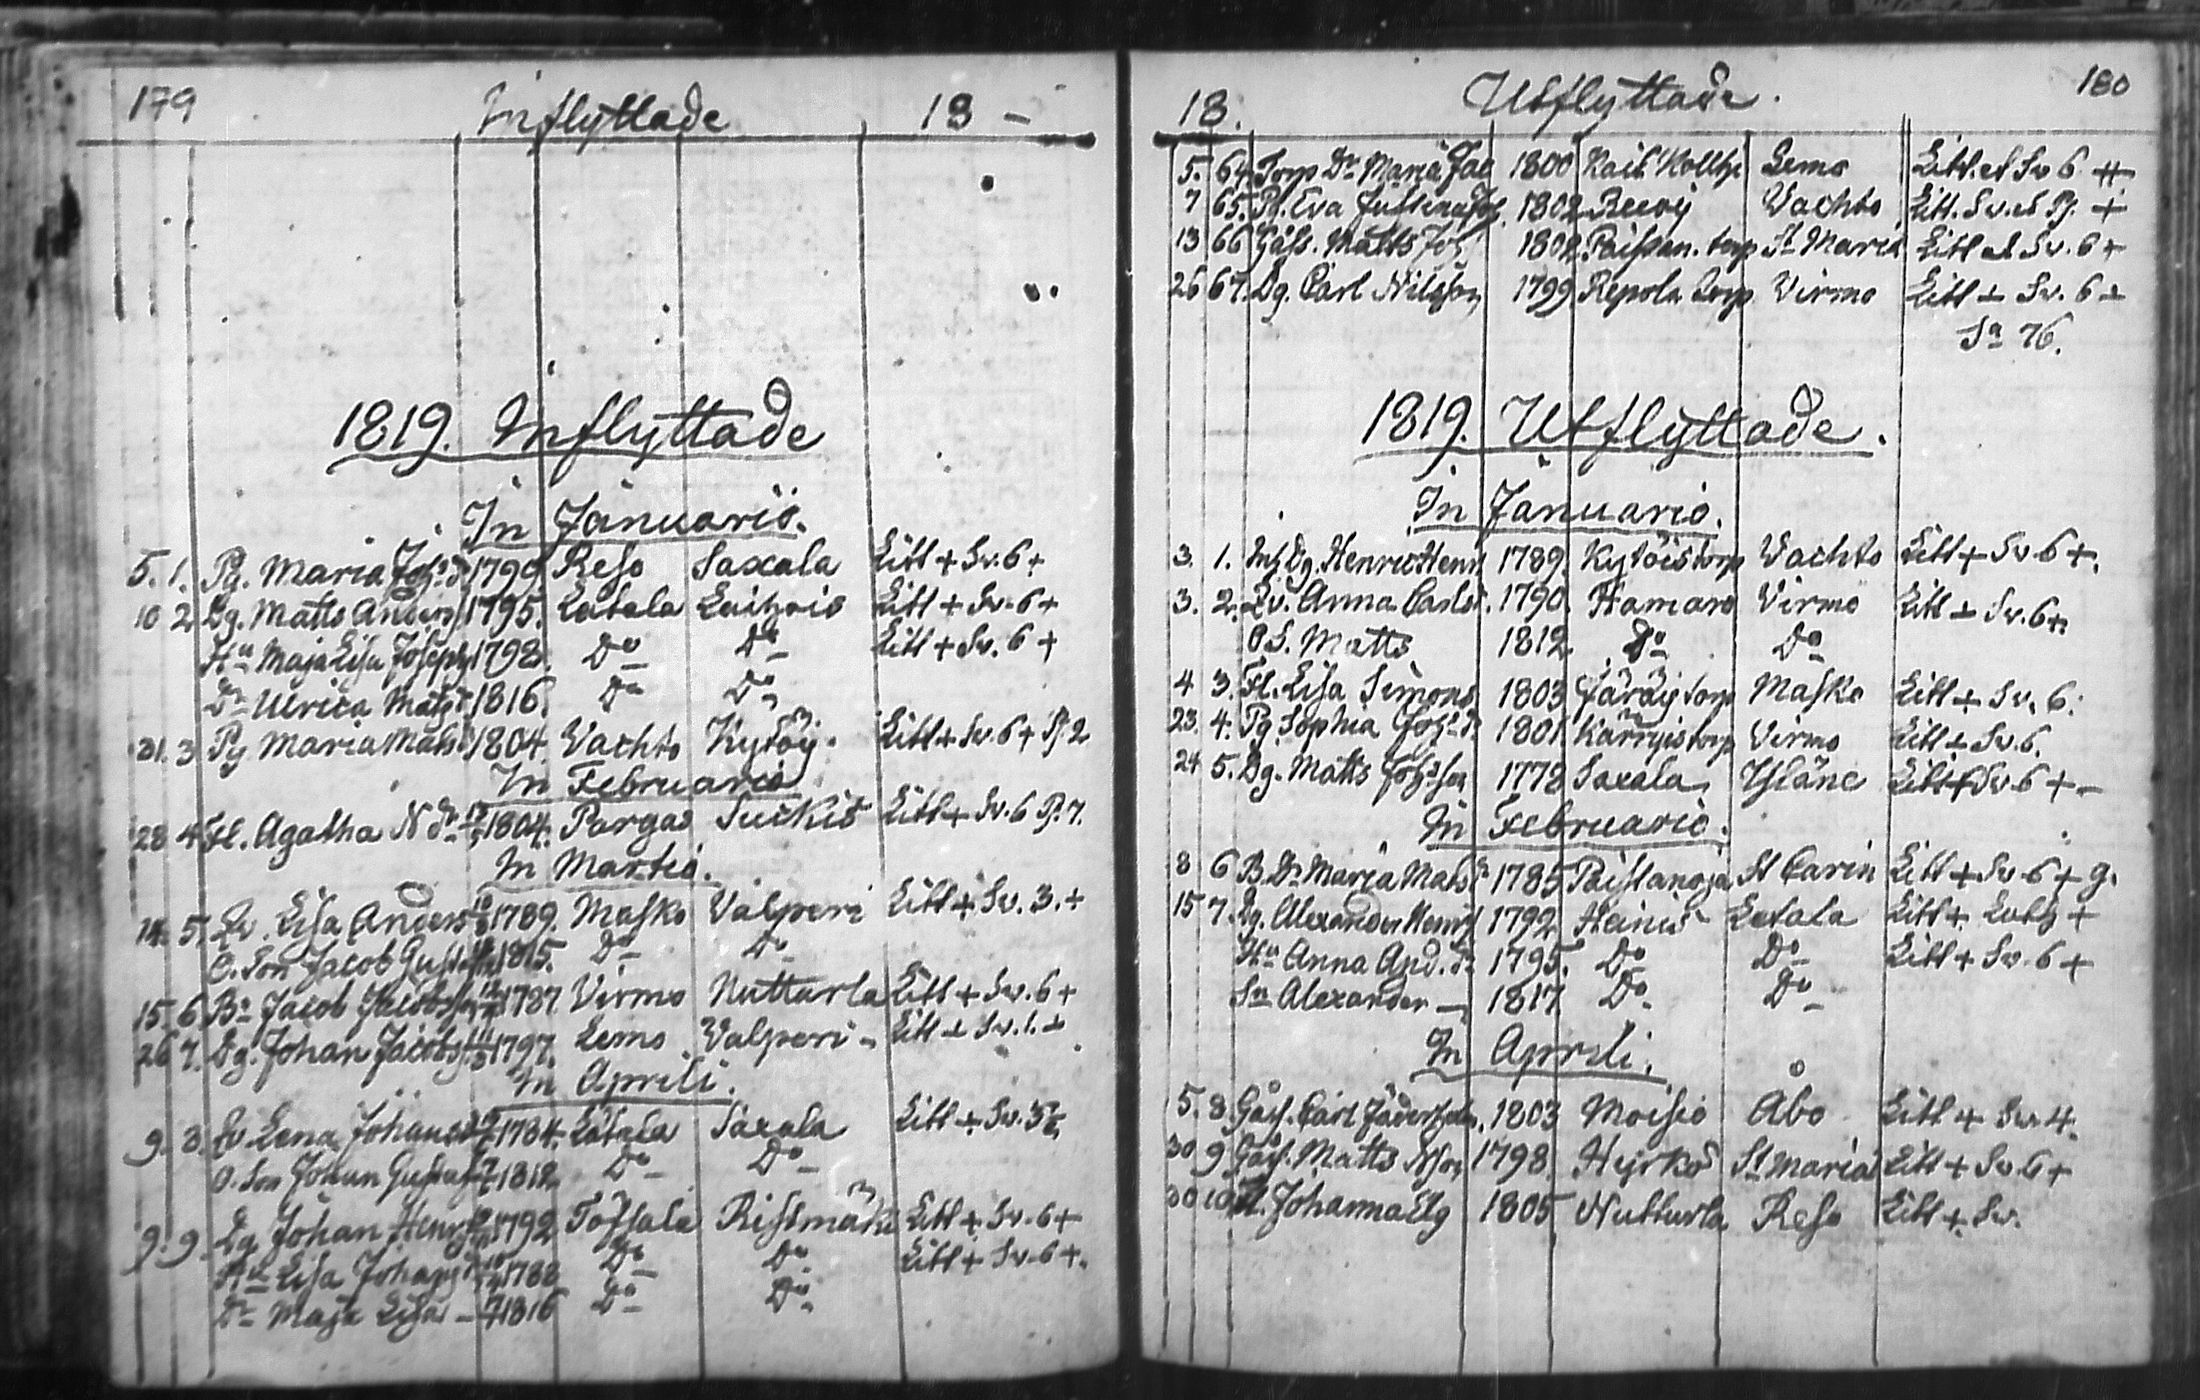 179 Inflyttade 18 –
1819. Inflyttade
In Januario.
5. 1. Pg. Maria Joh:s d 1799 Reso Saxala Litt + Sv. 6 +
10 2 Dg. Matts Anders 1795. Letala Laitzois Litt + Sv. 6 +
Hu Maja Lisa Joseph 1798. Do Do Litt + Sv. 6 +
Dr Ulrica Mats d. 1816. Do Do
31. 3 Pg Maria Mats d 1804. Vachto Kytöy. Litt + Sv. 6 + Ps. 2
In Februario
28 4 Fl. Agatha N dr 1804. Pargas Suikis Litt + Sv. 6 Ps. 7.
In Martio.
14. 5. Lv. Lisa Anders 1789. Masko Valperi Litt + Sv. 3. +
O. Son Jacob Gust 1815. Do Do
15. 6. Bo Jacob Jacobss 1787. Virmo Nutturla Litt + Sv. 6 +
26 7. Dg. Johan Jacobs 1797. Lemo Valperi Litt + Sv. 1. +
In Aprili.
9. 8. Lv. Lena Johans d 1784. Letala Saxala Litt + Sv. 3
O. Son Johan Gustaf 1812 Do Do
9. 9. Dg Johan Henrs 1792 Tofsala Rissmäki Litt + Sv. 6 +
Hu Lisa Johans d 1788 Do Do Litt + Sv. 6 +.
Dr Maja Lisa – 1816 Do Do
18. Utflyttade. 180
5. 64. Torp Dr Maria Jac 1800 Lemo Litt. et Sv 6 #
7 65. Pg. Eva Justina 1802 Vachto Litt. Sv. et Ps. +
13 66 Gåss. Matts Joh 1802 Paissan. torp St Maria Litt et Sv. 6 +
26 67. Dg. Carl Nilsson 1799 Repola torp Virmo Litt + Sv. 6 +
Sa 76.
1819. Utflyttade.
In Januario.
3. 1. Inh Dg. Henric Henr 1789 Kytöis torp Vachto Litt + Sv 6 +.
3. 2. Lv. Anna Carls d. 1790. Hamaro Virmo Litt + Sv. 6 +.
O S. Matts 1812 Do Do
4 3. Fl. Lisa Simons 1803 torp Masko Litt + Sv. 6.
23. 4. Pg. Sophia Joh:s d. 1801. torp Virmo Litt + Sv. 6.
24 5. Dg. Matts Joh:sson 1778 Saxala Yläne Litt + Sv 6 + –
In Februario.
8 6 B. Dr Maria Mats d 1785 Paistanoja St Carin Litt + Sv 6 + 9.
15 7. Dg. Alexander Henrs 1792 Heinis Letala Litt + Luth +
Hu Anna And. d. 1795. Do Do Litt + Sv. 6 +
Sn Alexander – 1817 Do Do
In Aprili.
5. 8. Gåss. Carl 1803 Moisio Åbo Litt + Sv. 4.
30 9 Gåss. Matts 1798. Hyrkö St Maria Litt + Sv. 6 +
30 10 Fl. Johanna Elg 1805 Nutturla Reso Litt + Sv.